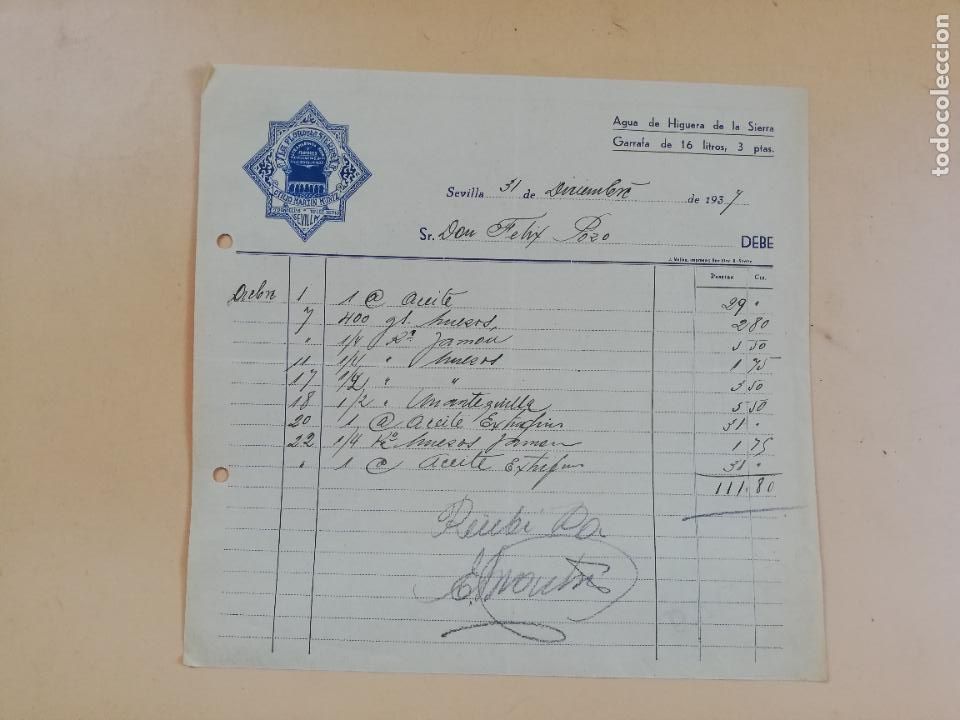 Agua de Higuera de la Sierra
Garrafa de 16 litros, 3 ptas.
LA FLOR DE LA SIERRA
EMILIO MARTIN MUÑOZ
SEVILLA
Sevilla 31 de Diciembre de 1937
Sr. Don Felix Pozo DEBE
Pesetas Cts.
Dicbre 1 1 @ Aceite 29 "
7 400 gr. huesos 2 80
" 1/4 Kº Jamon 5 50
11 1/4 " huesos 1 75
17 1/2 " " 3 50
18 1/2 " Mantequilla 5 50
20 1 @ Aceite Extrafino 31 "
22 1/4 Kº huesos Jamon 1 75
" 1 @ Aceite Extrafino 31 "
111.80
Recibi
E. Martin
todocoleccion